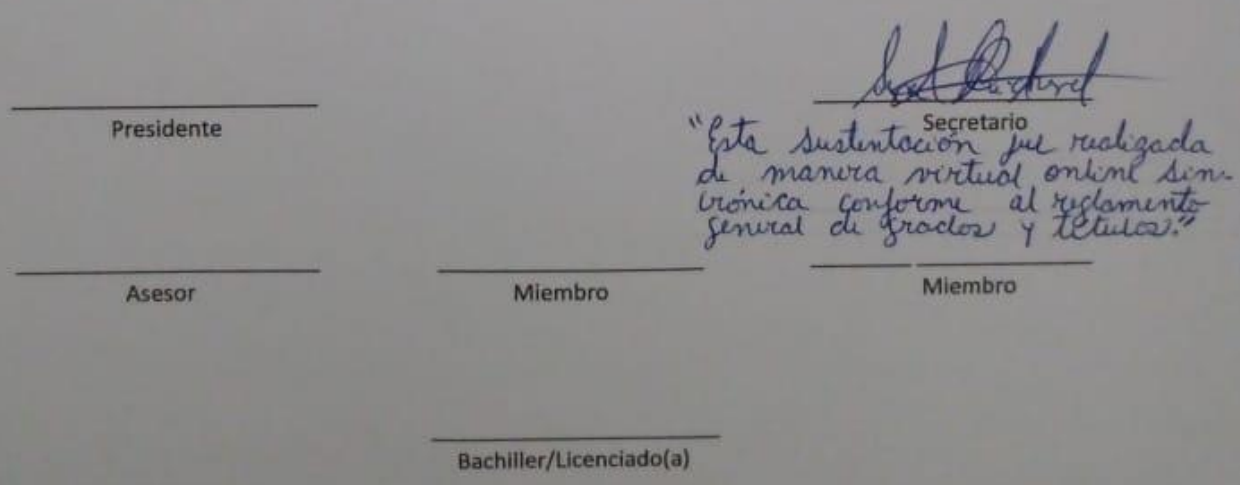 Presidente
Secretario
"Esta sustentación fue realizada
de manera virtual online sin-
crónica conforme al reglamento
general de grados y títulos."
Asesor
Miembro
Miembro
Bachiller/Licenciado(a)